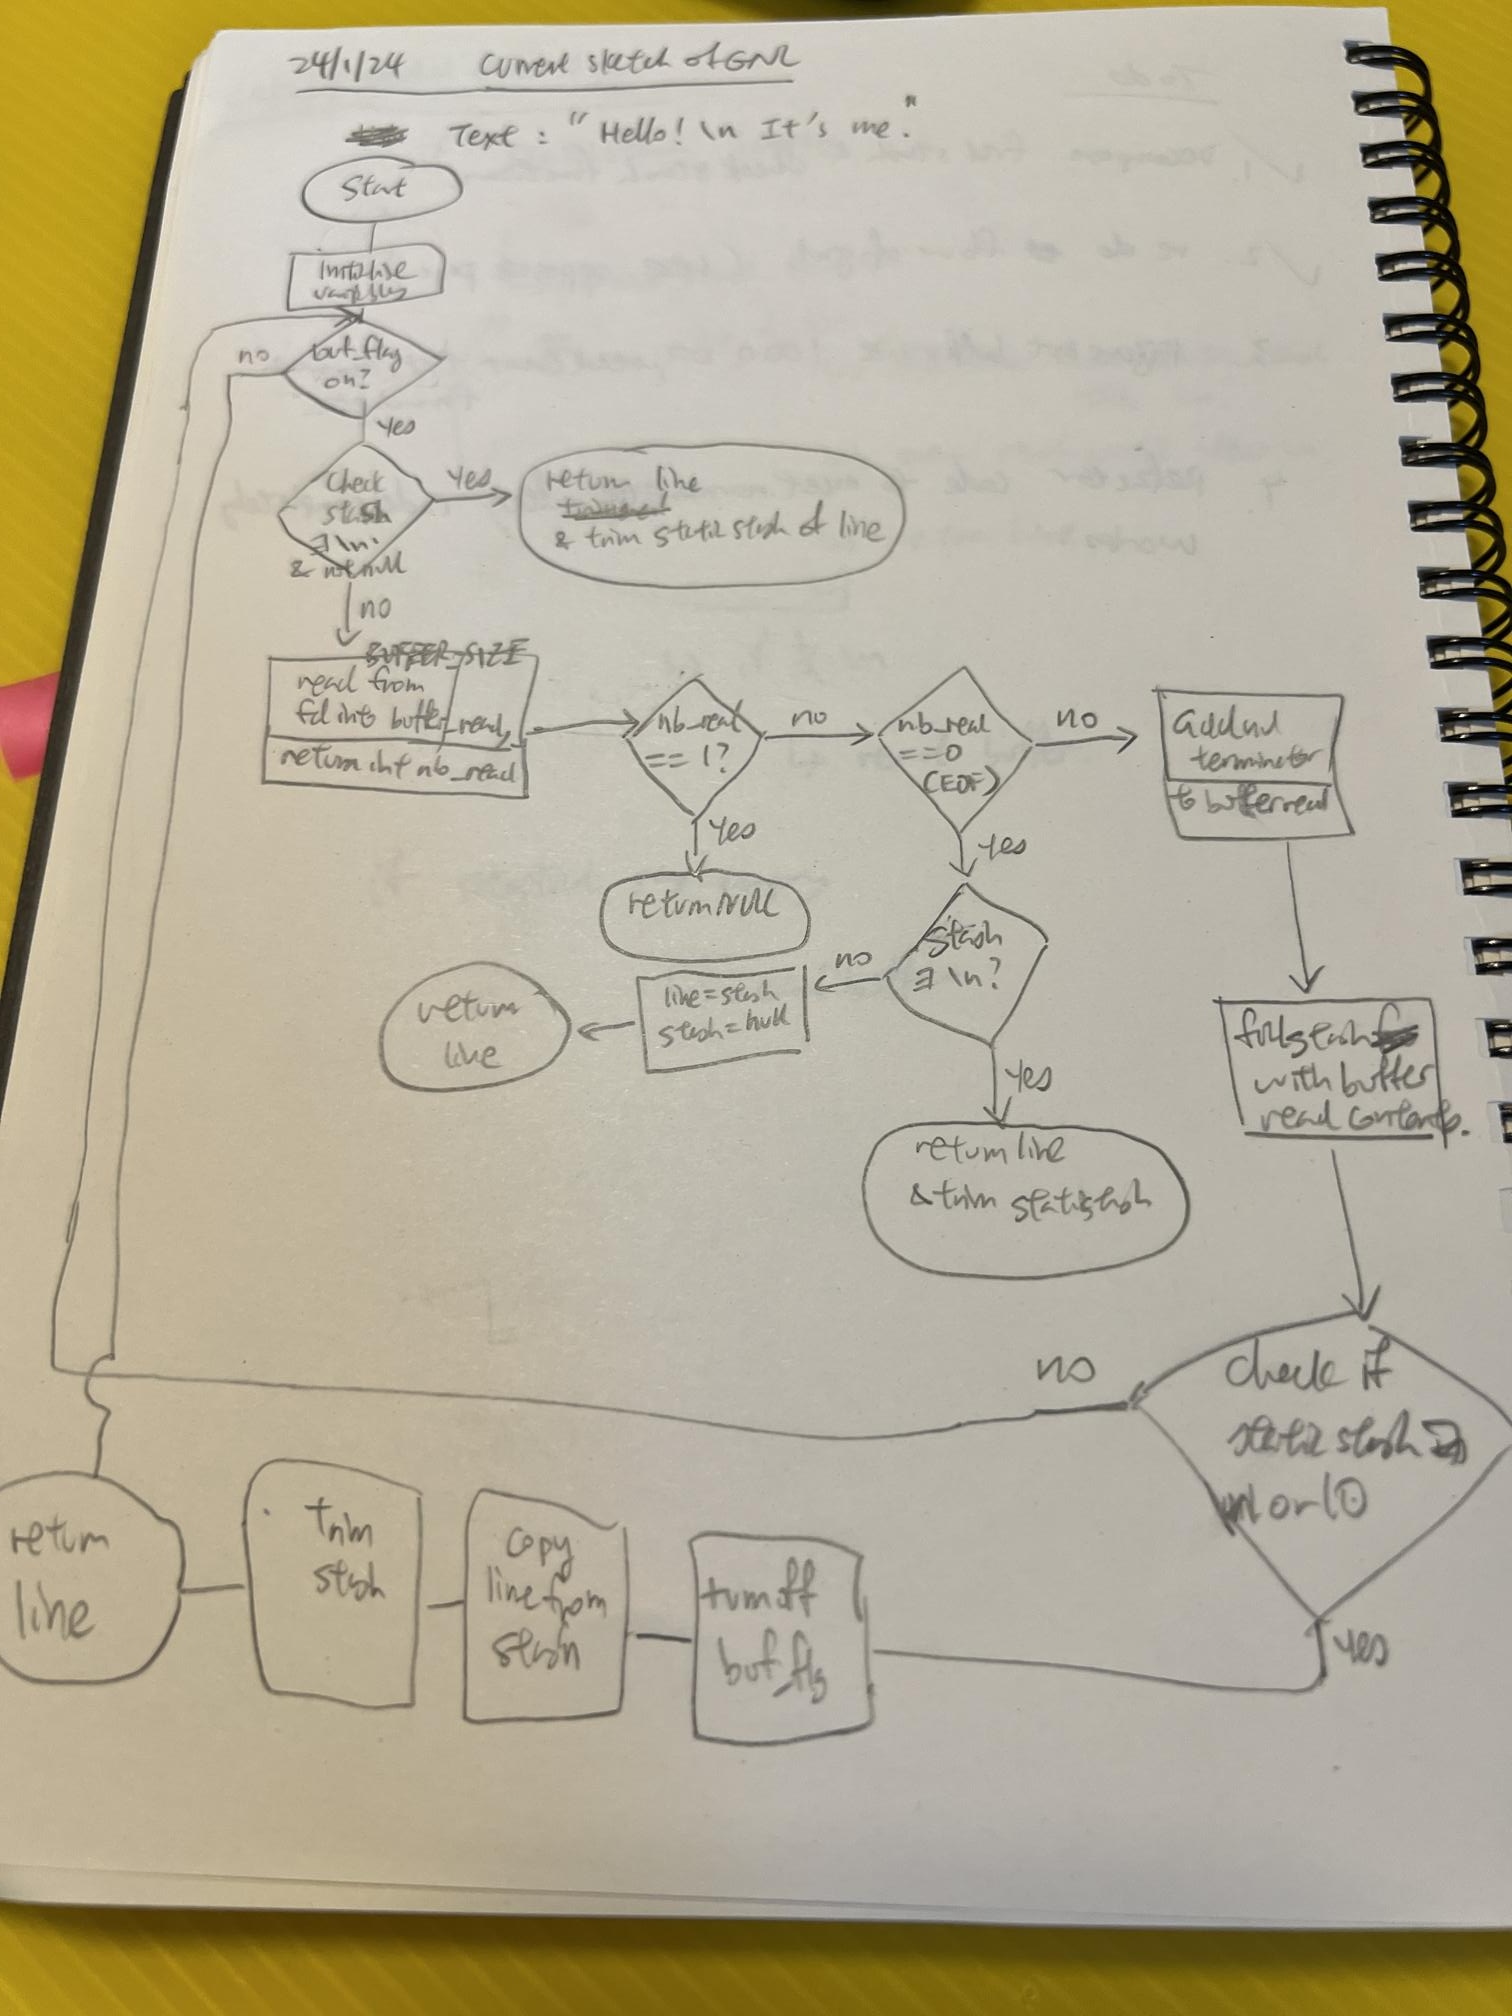 24/1/24 Current sketch of GNL
Text : "Hello! \n It's me."
Start
Initialise
variables
buf_flag
on?
no
yes
Check
stash
∃ \n.
& not null
yes
return line
& trim static stash of line
no
BUFFER_SIZE
read from
fd into buffer_read,
return int nb_read
nb_read
== 1?
no
nb_read
==0
(EOF)
no
Add nul
terminator
to buffer read
yes
return Null
yes
stash
∃ \n?
no
line=stash
stash=null
return
line
yes
return line
& trim static stash
full stash
with buffer
read contents.
check if
static stash ∃
\n or \0
no
yes
turn off
buf_flg
copy
line from
stash
Trim
stash
return
line